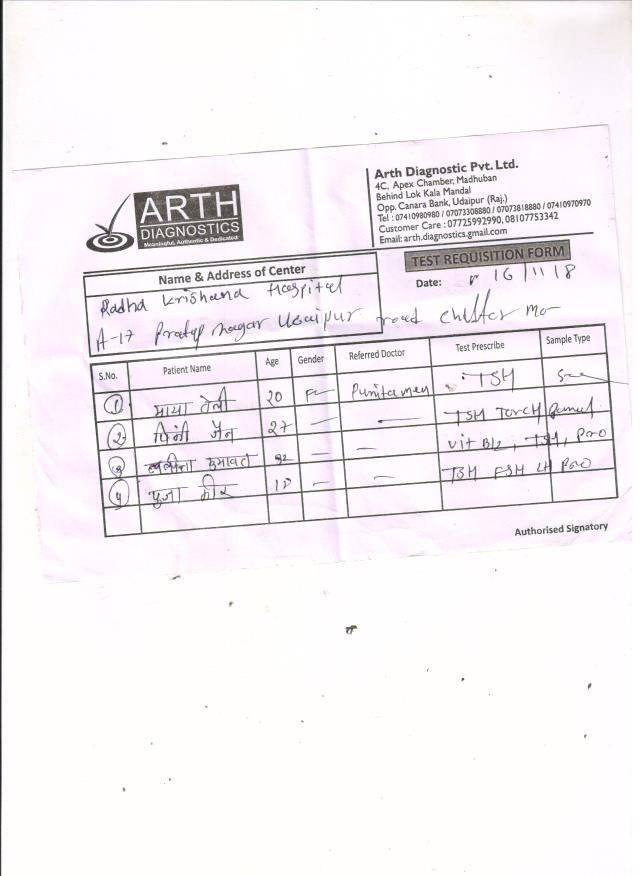 ARTH
DIAGNOSTICS
Meaningful, Authentic & Dedicated
Arth Diagnostic Pvt. Ltd.
4C, Apex Chamber, Madhuban
Behind Lok Kala Mandal
Opp. Canara Bank, Udaipur (Raj.)
Tel : 07410980980 / 07073308880 / 07073818880 / 07410970970
Customer Care : 07725992990, 08107753342
Email: arth.diagnostics.gmail.com
TEST REQUISITION FORM
Date: 16/11/18
Name & Address of Center
Radha Krishana Hospital
A-17 Pratap nagar Udaipur road
S.No. Patient Name Age Gender Referred Doctor Test Prescribe Sample Type
1 माया तेली 20 Fe TSH
2 पिंकी जैन 27 — — TSH TORCH
3 32 — — Vit B12, TSH,
4 पुजा 18 — — TSH FSH LH
Authorised Signatory